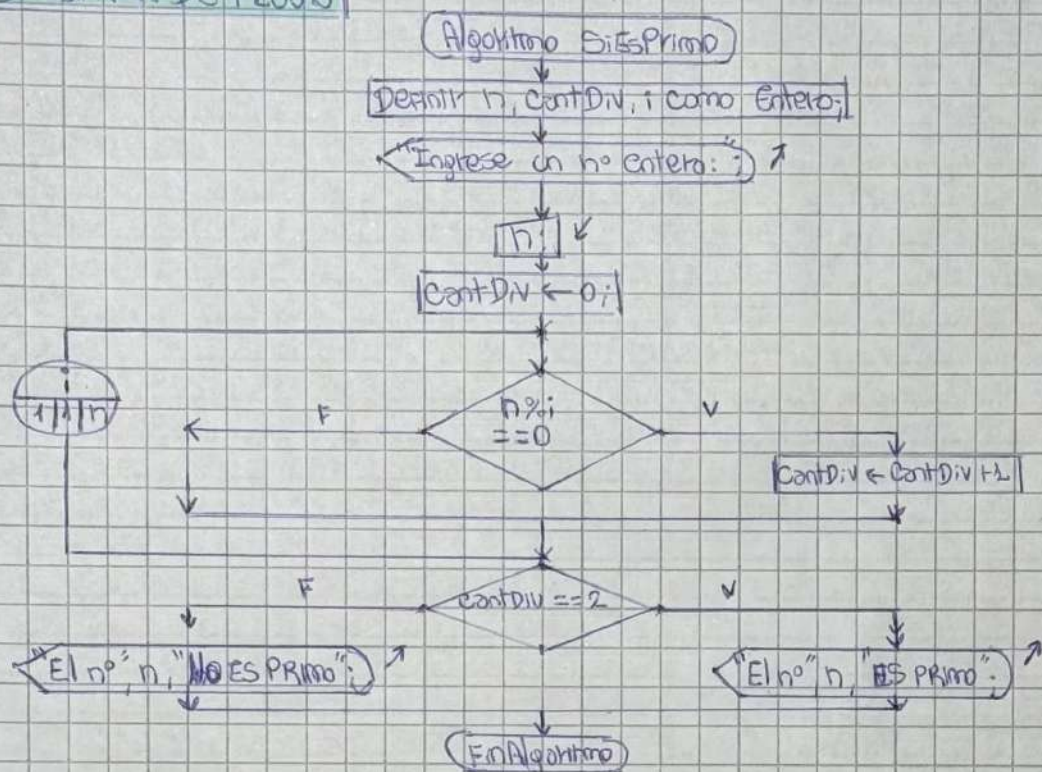 Algoritmo SiEsPrimo
Definir n, ContDiv, i como Entero;
"Ingrese un nº entero: ";
n;
ContDiv ← 0;
1 1 n
n%i
==0
F
V
ContDiv ← ContDiv+1
ContDiv ==2
F
V
"El nº", n, "NO ES PRIMO";
"El nº" n, "ES PRIMO";
FinAlgoritmo